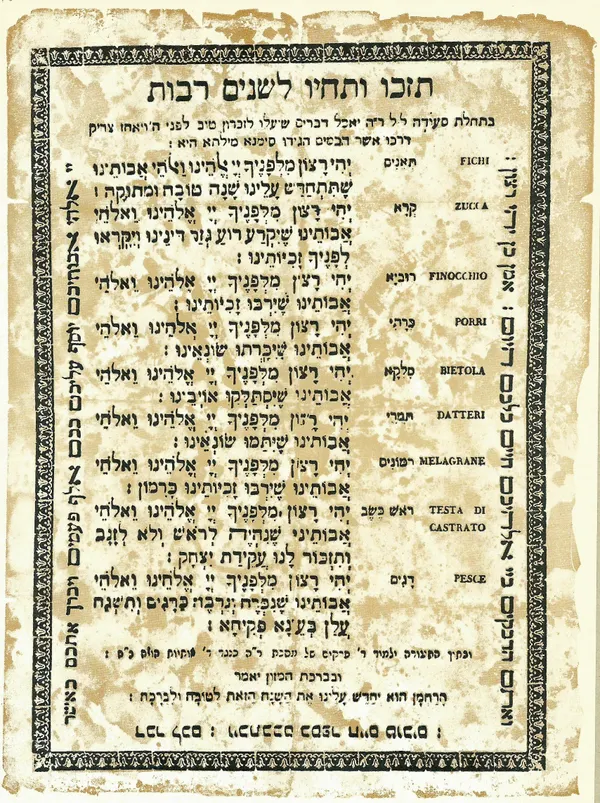 תזכו ותחיו לשנים רבות
בתחלת סעודה ל״ל ר״ה יאכל דברים שיעלו לזכרון טוב לפני ה׳ ויאחז צדיק
דרכו אשר הגידו סימנא מילתא היא :
FICHI תאנים יְהִי רָצוֹן מִלְּפָנֶיךָ יְיָ אֱלֹהֵינוּ וֵאלֹהֵי אֲבוֹתֵינוּ
שֶׁתִּתְחַדֵּשׁ עָלֵינוּ שָׁנָה טוֹבָה וּמְתוּקָה :
ZUCCA קְרָא יְהִי רָצוֹן מִלְּפָנֶיךָ יְיָ אֱלֹהֵינוּ וֵאלֹהֵי
אֲבוֹתֵינוּ שֶׁיִּקְרַע רוֹעַ גְּזַר דִּינֵינוּ וְיִקָּרְאוּ
לְפָנֶיךָ זְכֻיּוֹתֵינוּ :
FINOCCHIO רוּבִיָא יְהִי רָצוֹן מִלְּפָנֶיךָ יְיָ אֱלֹהֵינוּ וֵאלֹהֵי
אֲבוֹתֵינוּ שֶׁיִּרְבּוּ זְכֻיּוֹתֵינוּ :
PORRI כָּרָתֵי יְהִי רָצוֹן מִלְּפָנֶיךָ יְיָ אֱלֹהֵינוּ וֵאלֹהֵי
אֲבוֹתֵינוּ שֶׁיִּכָּרְתוּ שׂוֹנְאֵינוּ :
BIETOLA סִלְקָא יְהִי רָצוֹן מִלְּפָנֶיךָ יְיָ אֱלֹהֵינוּ וֵאלֹהֵי
אֲבוֹתֵינוּ שֶׁיִּסְתַּלְּקוּ אוֹיְבֵינוּ :
DATTERI תַּמְרֵי יְהִי רָצוֹן מִלְּפָנֶיךָ יְיָ אֱלֹהֵינוּ וֵאלֹהֵי
אֲבוֹתֵינוּ שֶׁיִּתַּמּוּ שׂוֹנְאֵינוּ :
MELAGRANE רמונים יְהִי רָצוֹן מִלְּפָנֶיךָ יְיָ אֱלֹהֵינוּ וֵאלֹהֵי
אֲבוֹתֵינוּ שֶׁיִּרְבּוּ זְכֻיּוֹתֵינוּ כָּרִמּוֹן :
TESTA DI ראש כֶּשֶׂב יְהִי רָצוֹן מִלְּפָנֶיךָ יְיָ אֱלֹהֵינוּ וֵאלֹהֵי
CASTRATO אֲבוֹתֵינוּ שֶׁנִּהְיֶה לְרֹאשׁ וְלֹא לְזָנָב
וְתִזְכּוֹר לָנוּ עֲקֵידַת יִצְחָק :
PESCE דָּגִים יְהִי רָצוֹן מִלְּפָנֶיךָ יְיָ אֱלֹהֵינוּ וֵאלֹהֵי
אֲבוֹתֵינוּ שֶׁנִּפְרֶה וְנִרְבֶּה כְּדָגִים וְתַשְׁגַּח
עֲלַן בְּעֵינָא פְּקִיחָא :
ובתוך הסעודה ילמוד ד׳ פרקים של מסכת ר״ה כנגד ד׳ אותיות
ובברכת המזון יאמר
הָרַחֲמָן הוּא יְחַדֵּשׁ עָלֵינוּ אֶת הַשָּׁנָה הַזֹּאת לְטוֹבָה וְלִבְרָכָה :
ואתם הדבקים ביי אלהיכם חיים כלכם היום : אמן כן יהי רצון :
יי אלהי אבותיכם יוסף עליכם ככם אלף פעמים ויברך אתכם כאשר
דבר לכם : ויכתבכם בספר חיים טובים :